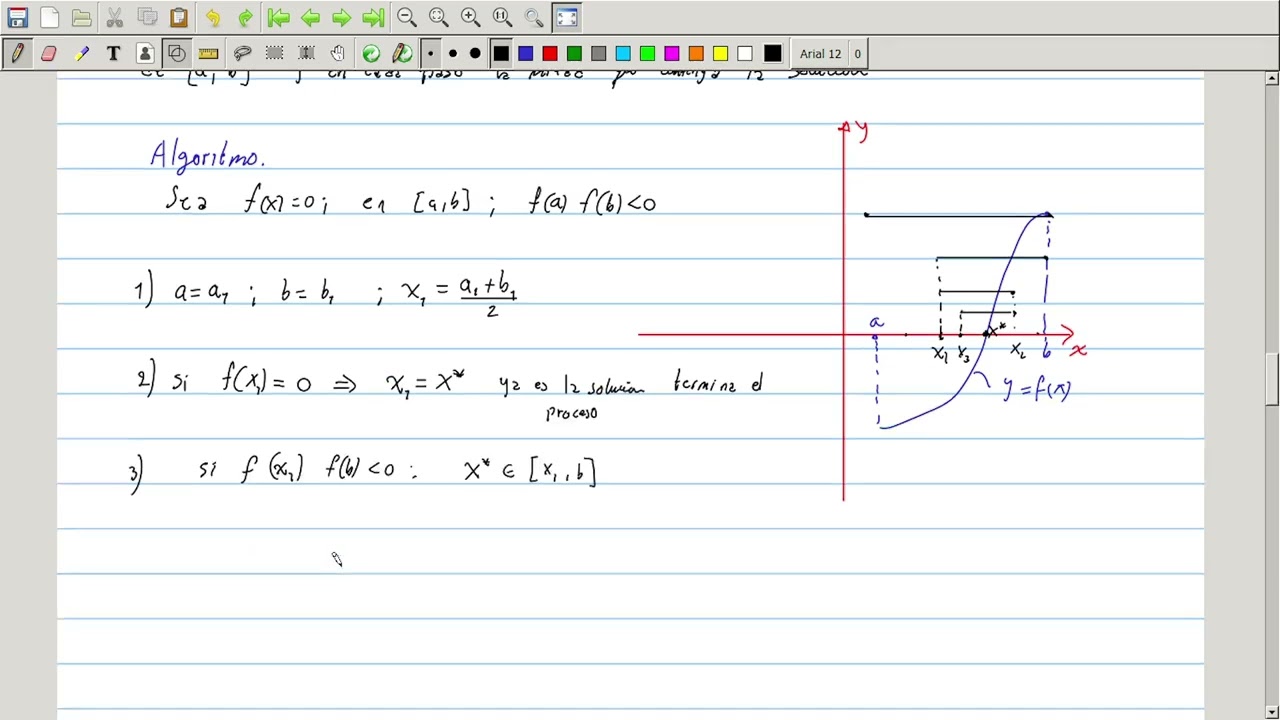 Arial 12 0
Algoritmo.
Sea f(x)=0; en [a,b]; f(a) f(b)<0
1) a=a₁ ; b=b₁ ; x₁ = (a₁+b₁)/2
2) si f(x₁)=0 ⇒ x₁=x* ya es la solucion termina el
proceso
3) si f(x₁) f(b)<0 : x* ∈ [x₁,b]
y
a
x*
x₁ x₃ x₂ b x
y=f(x)